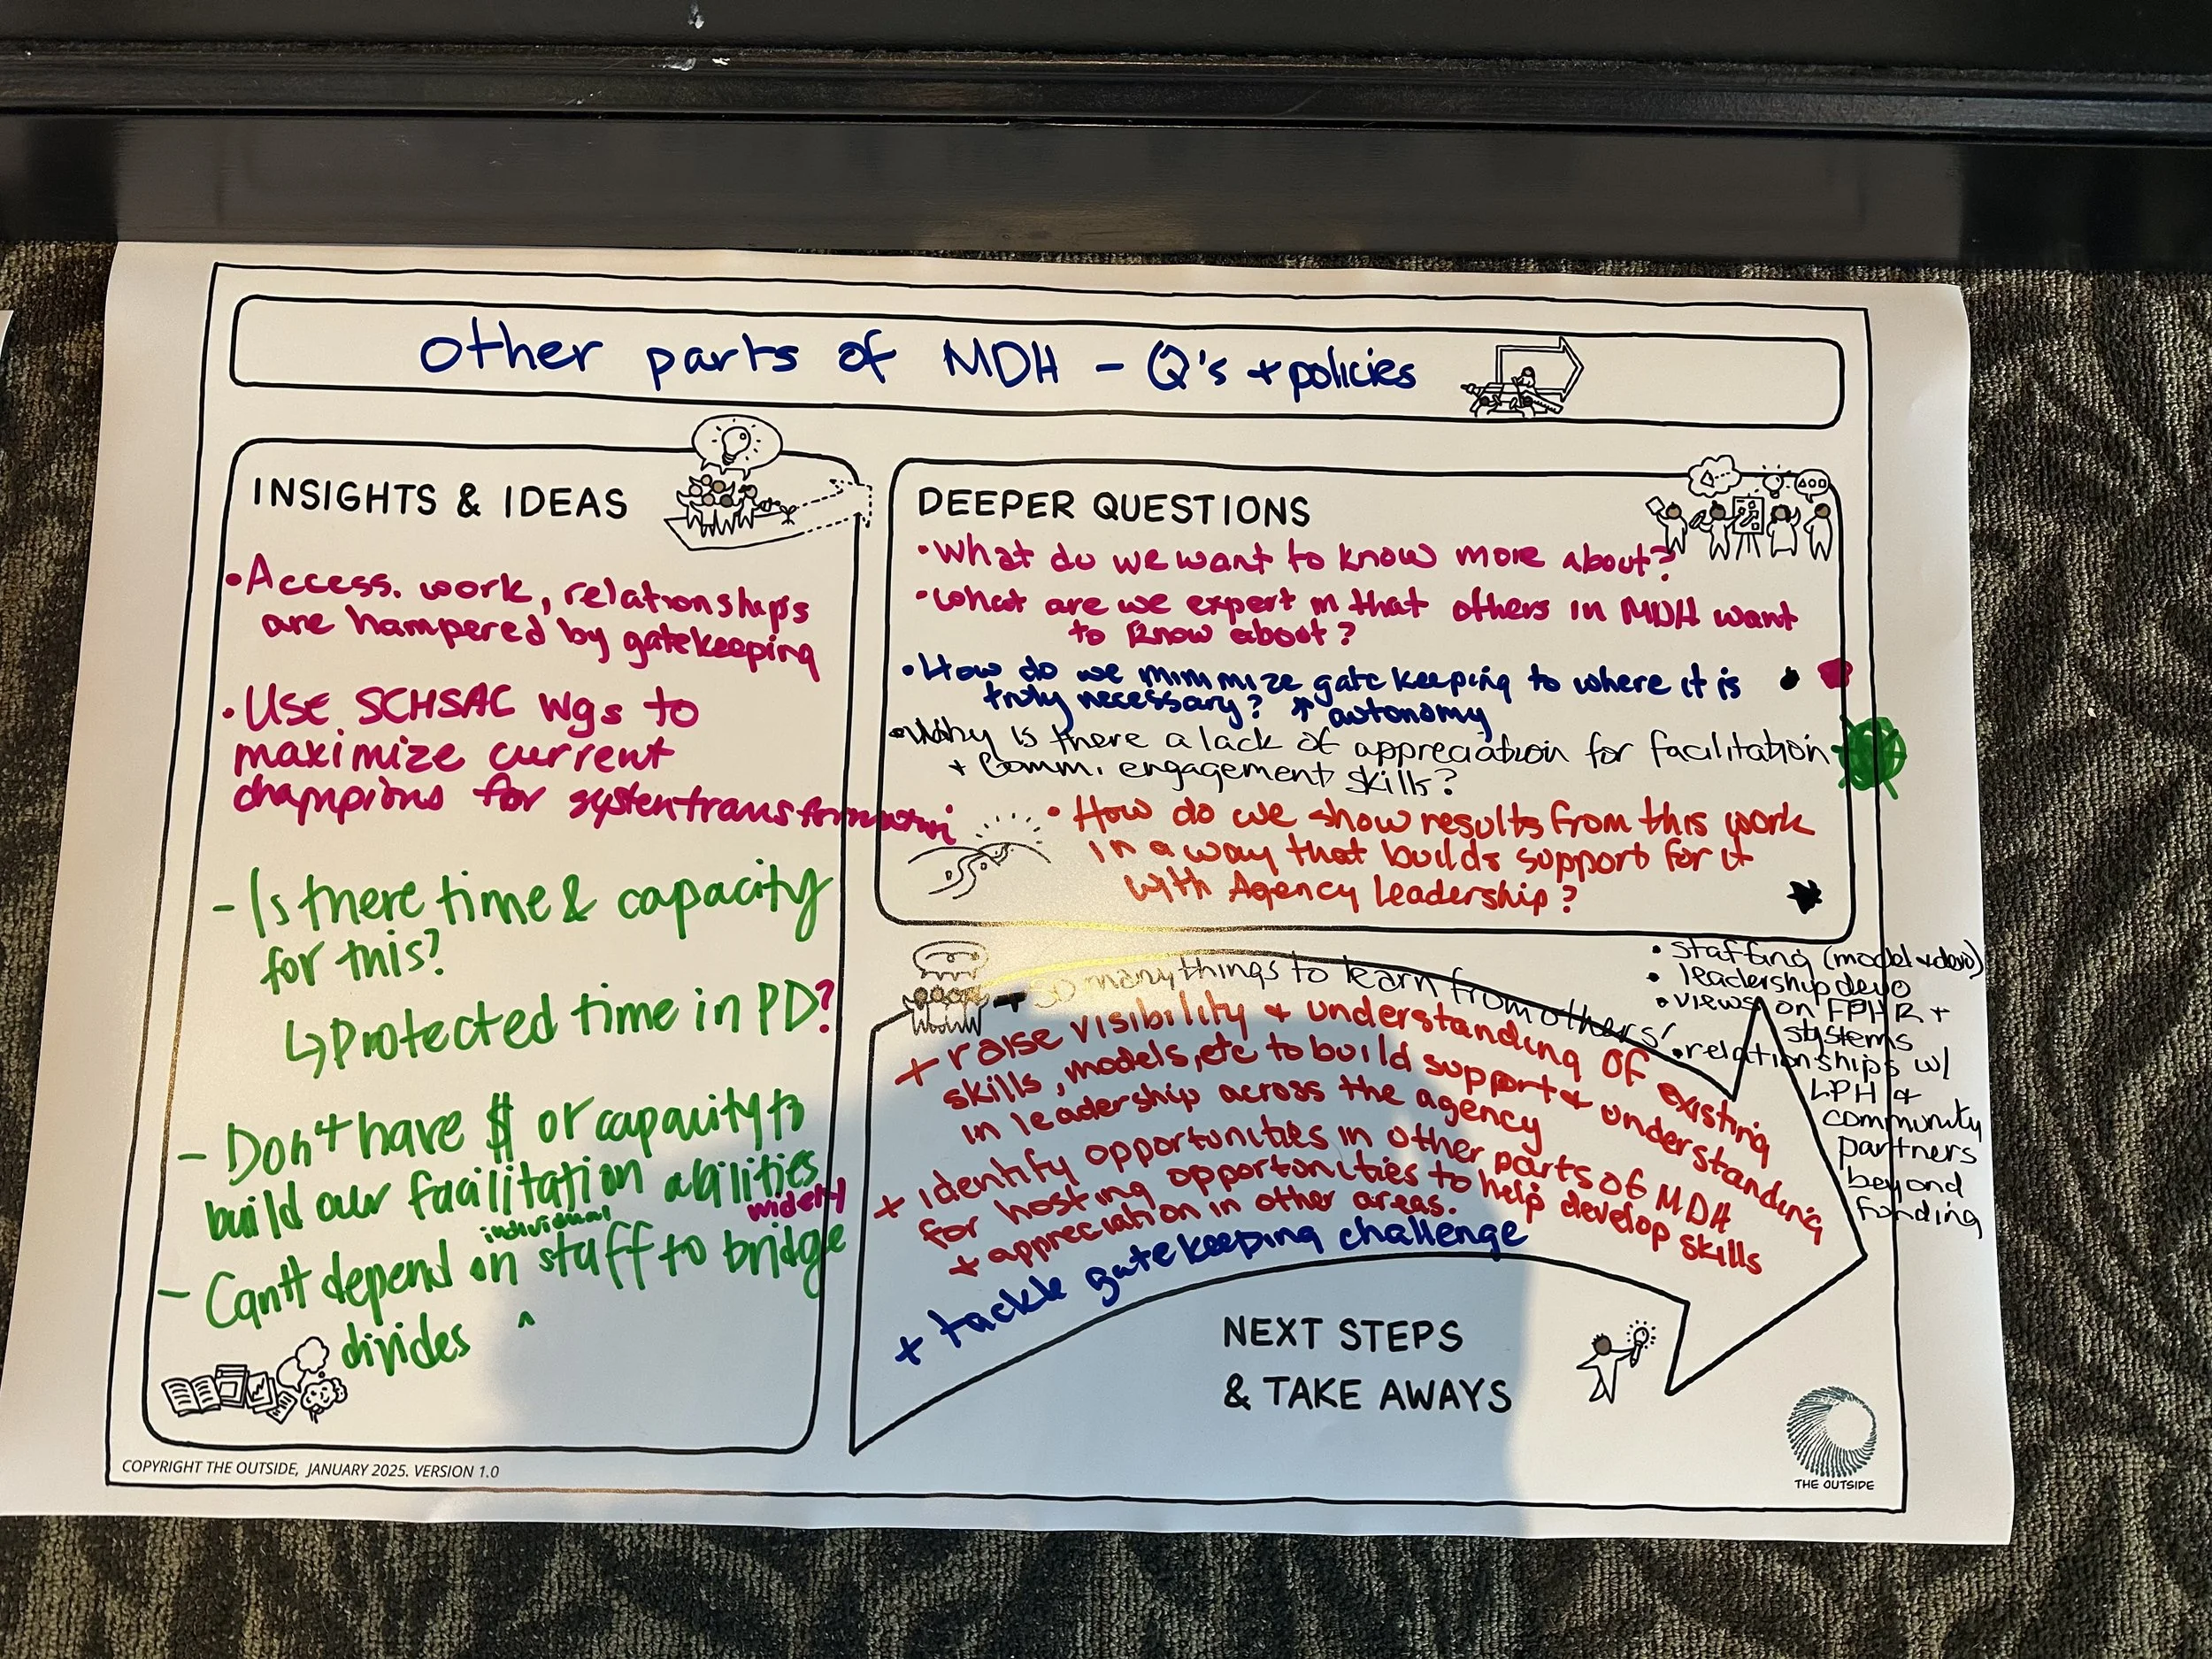 Other parts of MDH - Q's + policies
INSIGHTS & IDEAS
• Access. work, relationships
are hampered by gatekeeping
• Use SCHSAC wgs to
maximize current
champions for system transformation
- Is there time & capacity
for this?
↳ Protected time in PD?
- Don't have $ or capacity to
build our facilitation abilities
widely
individual
- Can't depend on staff to bridge
^
divides
DEEPER QUESTIONS
• What do we want to know more about?
• What are we expert in that others in MDH want
to know about?
• How do we minimize gatekeeping to where it is
truly necessary? ↑ autonomy
• Why is there a lack of appreciation for facilitation
+ Comm. engagement skills?
• How do we show results from this work
in a way that builds support for it
with Agency Leadership?
+ so many things to learn from others'
• staffing (model + devo)
• leadership devo
• views on FPHR +
systems
• relationships w/
LPH +
community
partners
beyond
funding
+ raise visibility & understanding of existing
skills, models, etc to build support & understanding
in leadership across the agency
+ identify opportunities in other parts of MDH
for hosting opportunities to help develop skills
+ appreciation in other areas.
+ tackle gatekeeping challenge
NEXT STEPS
& TAKE AWAYS
COPYRIGHT THE OUTSIDE, JANUARY 2025. VERSION 1.0
THE OUTSIDE